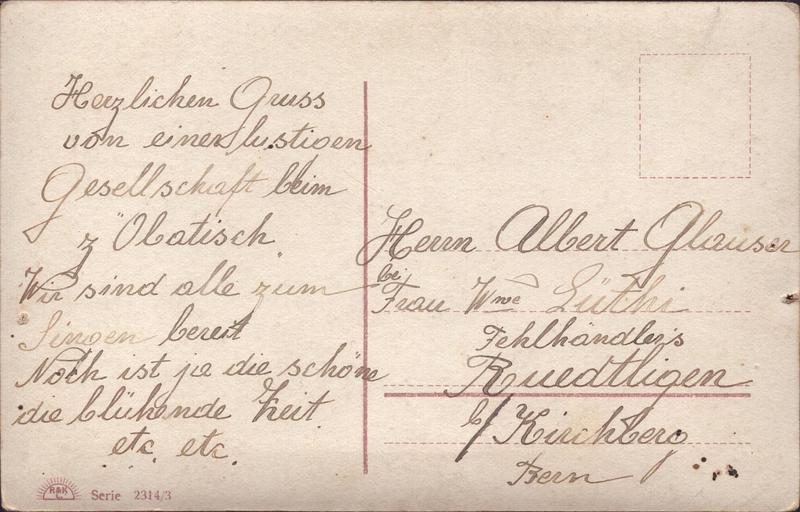 Herzlichen Gruss
von einer lustigen
Gesellschaft beim
z'Obatisch
Wir sind alle zum
Singen bereit
Noch ist ja die schöne
die blühende Zeit
etc. etc.
Herrn Albert Glauser
bei
Frau Wwe Lüthi
Fehlhändlers
Ruedtligen
b/ Kirchberg
Bern
R&K
Serie 2314/3